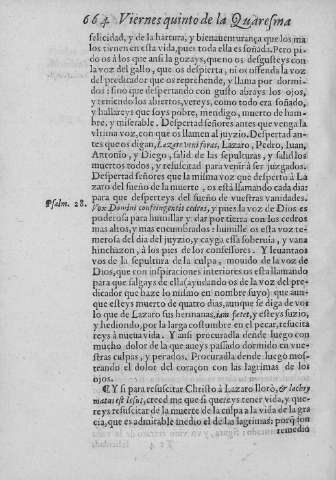 664 Viernes quinto de la Quaresma
felicidad, y de la hartura, y bienauenturança que los ma
los tienen en esta vida, pues toda ella es soñada. Pero pi
do os à los que ansi la gozays, que no os desgusteys con
la voz del gallo, que os despierta, ni os offenda la voz
del predicador que os reprehende, y llama por dormi-
dos: sino que despertando con gusto abrays los ojos,
y teniendo los abiertos, vereys, como todo era soñado,
y hallareys que soys pobre, mendigo, muerto de ham-
bre, y miserable. Despertad señores antes que venga la
vltima voz, con que os llamen al juyzio. Despertad an-
tes que os digan, Lazare veni foras, Lazaro, Pedro, Iuan,
Antonio, y Diego, salid de las sepulturas, y salid los
muertos todos, y resuscitad para venir à ser juzgados.
Despertad señores que la misma voz que desperto à La
zaro del sueño de la muerte, os està llamando cada dia:
para que desperteys del sueño de vuestras vanidades.
Psalm. 28. Vox Domini confringentis cedros, y pues la voz de Dios es
poderosa para humillar y dar por tierra con los cedros
mas altos, y mas encumbrados: humille os esta voz te-
merosa del dia del juyzio, y cayga essa soberuia, y vana
hinchazon, à los pies de los confessores. Y leuantaos
vos de la sepultura de la culpa, mouido de la voz de
Dios, que con inspiraciones interiores os esta llamando
para que salgays de ella (ayudando os de la voz del pre-
dicador que haze lo mismo en nombre suyo) que aun-
que esteys muerto de quatro dias, aunque se diga de vos
lo que de Lazaro sus hermanas, iam fœtet, y esteys suzio,
y hediondo, por la larga costumbre en el pecar, resuscita
reys à nueua vida. Y ansi procuradla desde luego con
mucho dolor de lo que aueys passado dormido en vue-
stras culpas, y pecados. Procuradla desde luego mos-
trando el dolor del coraçon con las lagrimas de los
ojos.
¶ Y si para resuscitar Christo à Lazaro llorò, & lachry
matus est Iesus, creed me que si quereys tener vida, y que-
reys resuscitar de la muerte de la culpa a la vida de la gra
cia, que es admirable medio el de las lagrimas; porq̃ son
remedio